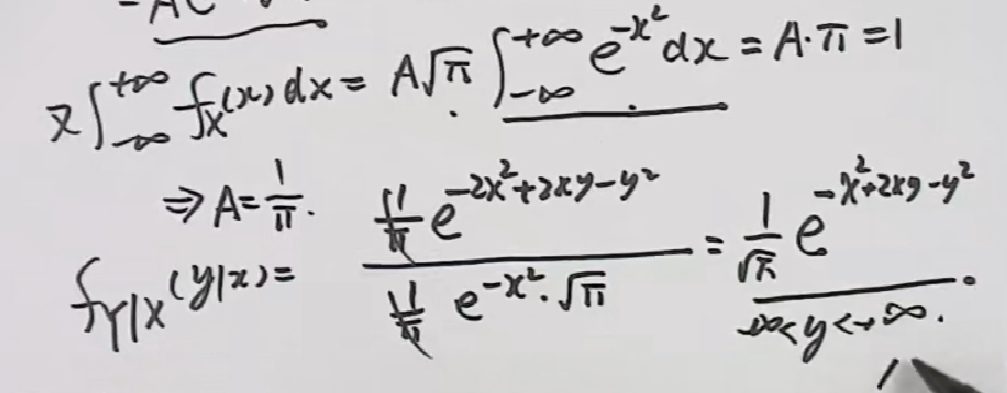 = AC
又∫_{-∞}^{+∞} f_X(x)dx = A√π ∫_{-∞}^{+∞} e^{-x²}dx = A·π = 1
⇒ A = 1/π.
f_{Y|X}(y|x) = (1/π e^{-2x²+2xy-y²})/(1/π e^{-x²}·√π) = 1/√π e^{-x²+2xy-y²}.
-∞<y<+∞.